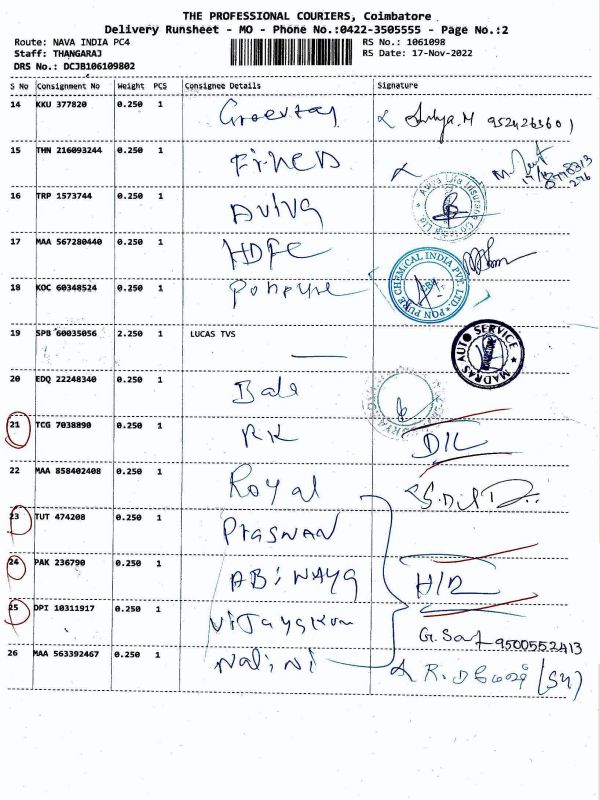 THE PROFESSIONAL COURIERS, Coimbatore
Delivery Runsheet - MO - Phone No.:0422-3505555 - Page No.:2
Route: NAVA INDIA PC4
RS No.: 1061098
Staff: THANGARAJ
RS Date: 17-Nov-2022
DRS No.: DCJB106109802
S No Consignment No Weight PCS Consignee Details Signature
14 KKU 377820 0.250 1
15 THN 216093244 0.250 1
16 TRP 1573744 0.250 1 Aviva
17 MAA 567280440 0.250 1 HDFC
PON PURE CHEMICAL INDIA PVT. LTD.
18 KOC 60348524 0.250 1 Ponpure
19 SPB 60035056 2.250 1 LUCAS TVS
MADRAS AUTO SERVICE
20 EDQ 22248340 0.250 1 Bala
21 TCG 7038890 0.250 1 RK D/L
22 MAA 858402408 0.250 1 Royal
23 TUT 474208 0.250 1
24 PAK 236790 0.250 1 ABiNAYA H/R
25 DPI 10311917 0.250 1 ViJayakum
9500552413
26 MAA 563392467 0.250 1 Nalini